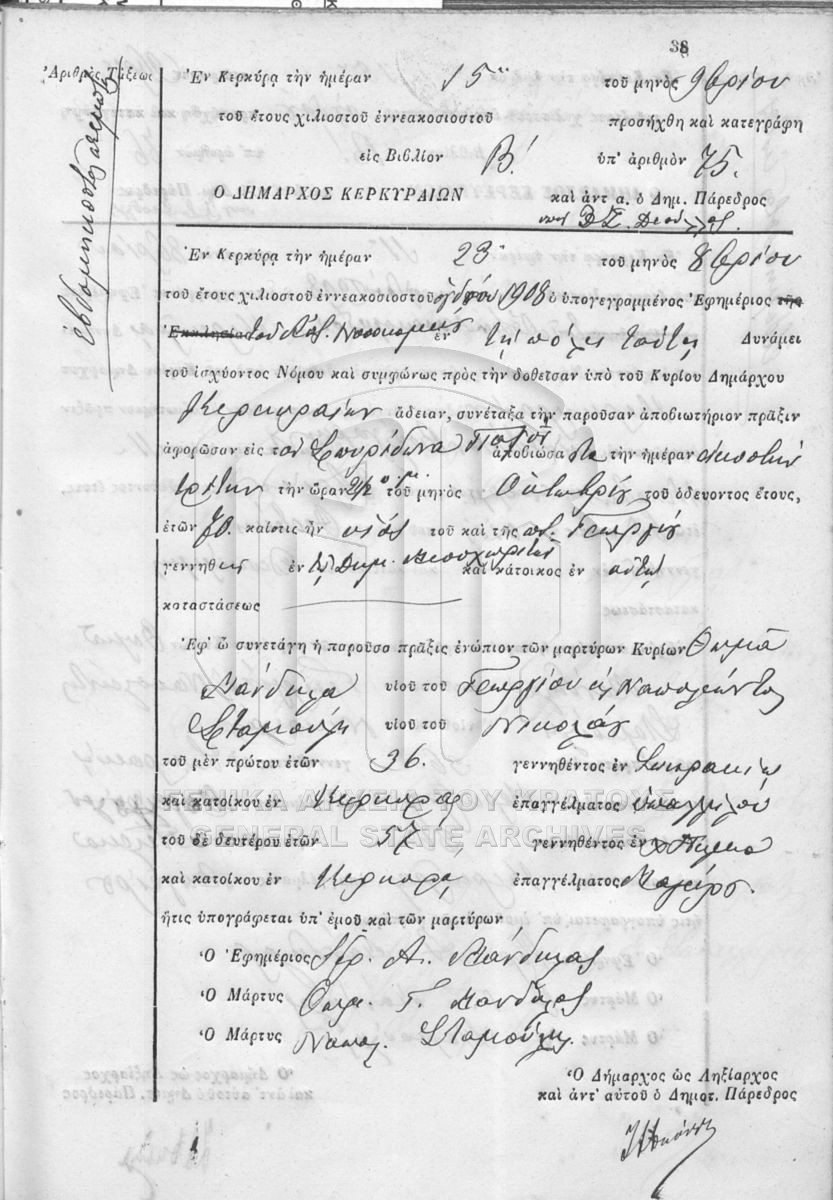 38
Ἀριθμὸς Τάξεως
Ἐν Κερκύρᾳ τὴν ἡμέραν 15 τοῦ μηνὸς 9βρίου
τοῦ ἔτους χιλιοστοῦ ἐννεακοσιοστοῦ προσήχθη καὶ κατεγράφη
εἰς Βιβλίον Β΄. ὑπ᾽ ἀριθμὸν 75.
Ο ΔΗΜΑΡΧΟΣ ΚΕΡΚΥΡΑΙΩΝ καὶ ἀντ᾽ α. ὁ Δημ. Πάρεδρος
Ἐν Κερκύρᾳ τὴν ἡμέραν 23 τοῦ μηνὸς 8βρίου
τοῦ ἔτους χιλιοστοῦ ἐννεακοσιοστοῦ ὀγδόου 1908 ὁ ὑπογεγραμμένος Ἐφημέριος τῆς
Ἐκκλησίας τοῦ Νοσοκομείου ἐν τῇ πόλει ταύτῃ Δυνάμει
τοῦ ἰσχύοντος Νόμου καὶ συμφώνως πρὸς τὴν δοθεῖσαν ὑπὸ τοῦ Κυρίου Δημάρχου
Κερκυραίων ἄδειαν, συνέταξα τὴν παροῦσαν ἀποβιωτήριον πρᾶξιν
ἀφορῶσαν εἰς τὸν Σπυρίδωνα ἀποβιώσαντα τὴν ἡμέραν εἰκοστὴν
τρίτην τὴν ὥραν 2½ μ.μ. τοῦ μηνὸς Ὀκτωβρίου τοῦ ὁδεύοντος ἔτους,
ἐτῶν 70. καὶ ὅστις ἦν υἱὸς τοῦ καὶ τῆς Γεωργίου
γεννηθεὶς ἐν Δημ. Μεσοχωριτῶν καὶ κάτοικος ἐν αὐτῷ
καταστάσεως
Ἐφ᾽ ᾧ συνετάγη ἡ παροῦσα πρᾶξις ἐνώπιον τῶν μαρτύρων Κυρίων Θωμᾶ
Μάνδυλα υἱοῦ τοῦ Γεωργίου κ Ναπολέοντος
Σταμούλη υἱοῦ τοῦ Νικολάου
τοῦ μὲν πρώτου ἐτῶν 36. γεννηθέντος ἐν Σωκρακίῳ
καὶ κατοίκου ἐν Κερκύρᾳ ἐπαγγέλματος ὑπαλλήλου
τοῦ δὲ δευτέρου ἐτῶν 57 γεννηθέντος ἐν
καὶ κατοίκου ἐν Κερκύρᾳ ἐπαγγέλματος Μαγείρου.
ἥτις ὑπογράφεται ὑπ᾽ ἐμοῦ καὶ τῶν μαρτύρων
Ὁ Ἐφημέριος Ἱερ. Α. Μάνδυλας
Ὁ Μάρτυς Θωμ. Γ. Μάνδυλας
Ὁ Μάρτυς Ναπολ. Σταμούλης.
Ὁ Δήμαρχος ὡς Ληξίαρχος
καὶ ἀντ᾽ αὐτοῦ ὁ Δημοτ. Πάρεδρος
ΓΕΝΙΚΑ ΑΡΧΕΙΑ ΤΟΥ ΚΡΑΤΟΥΣ
GENERAL STATE ARCHIVES